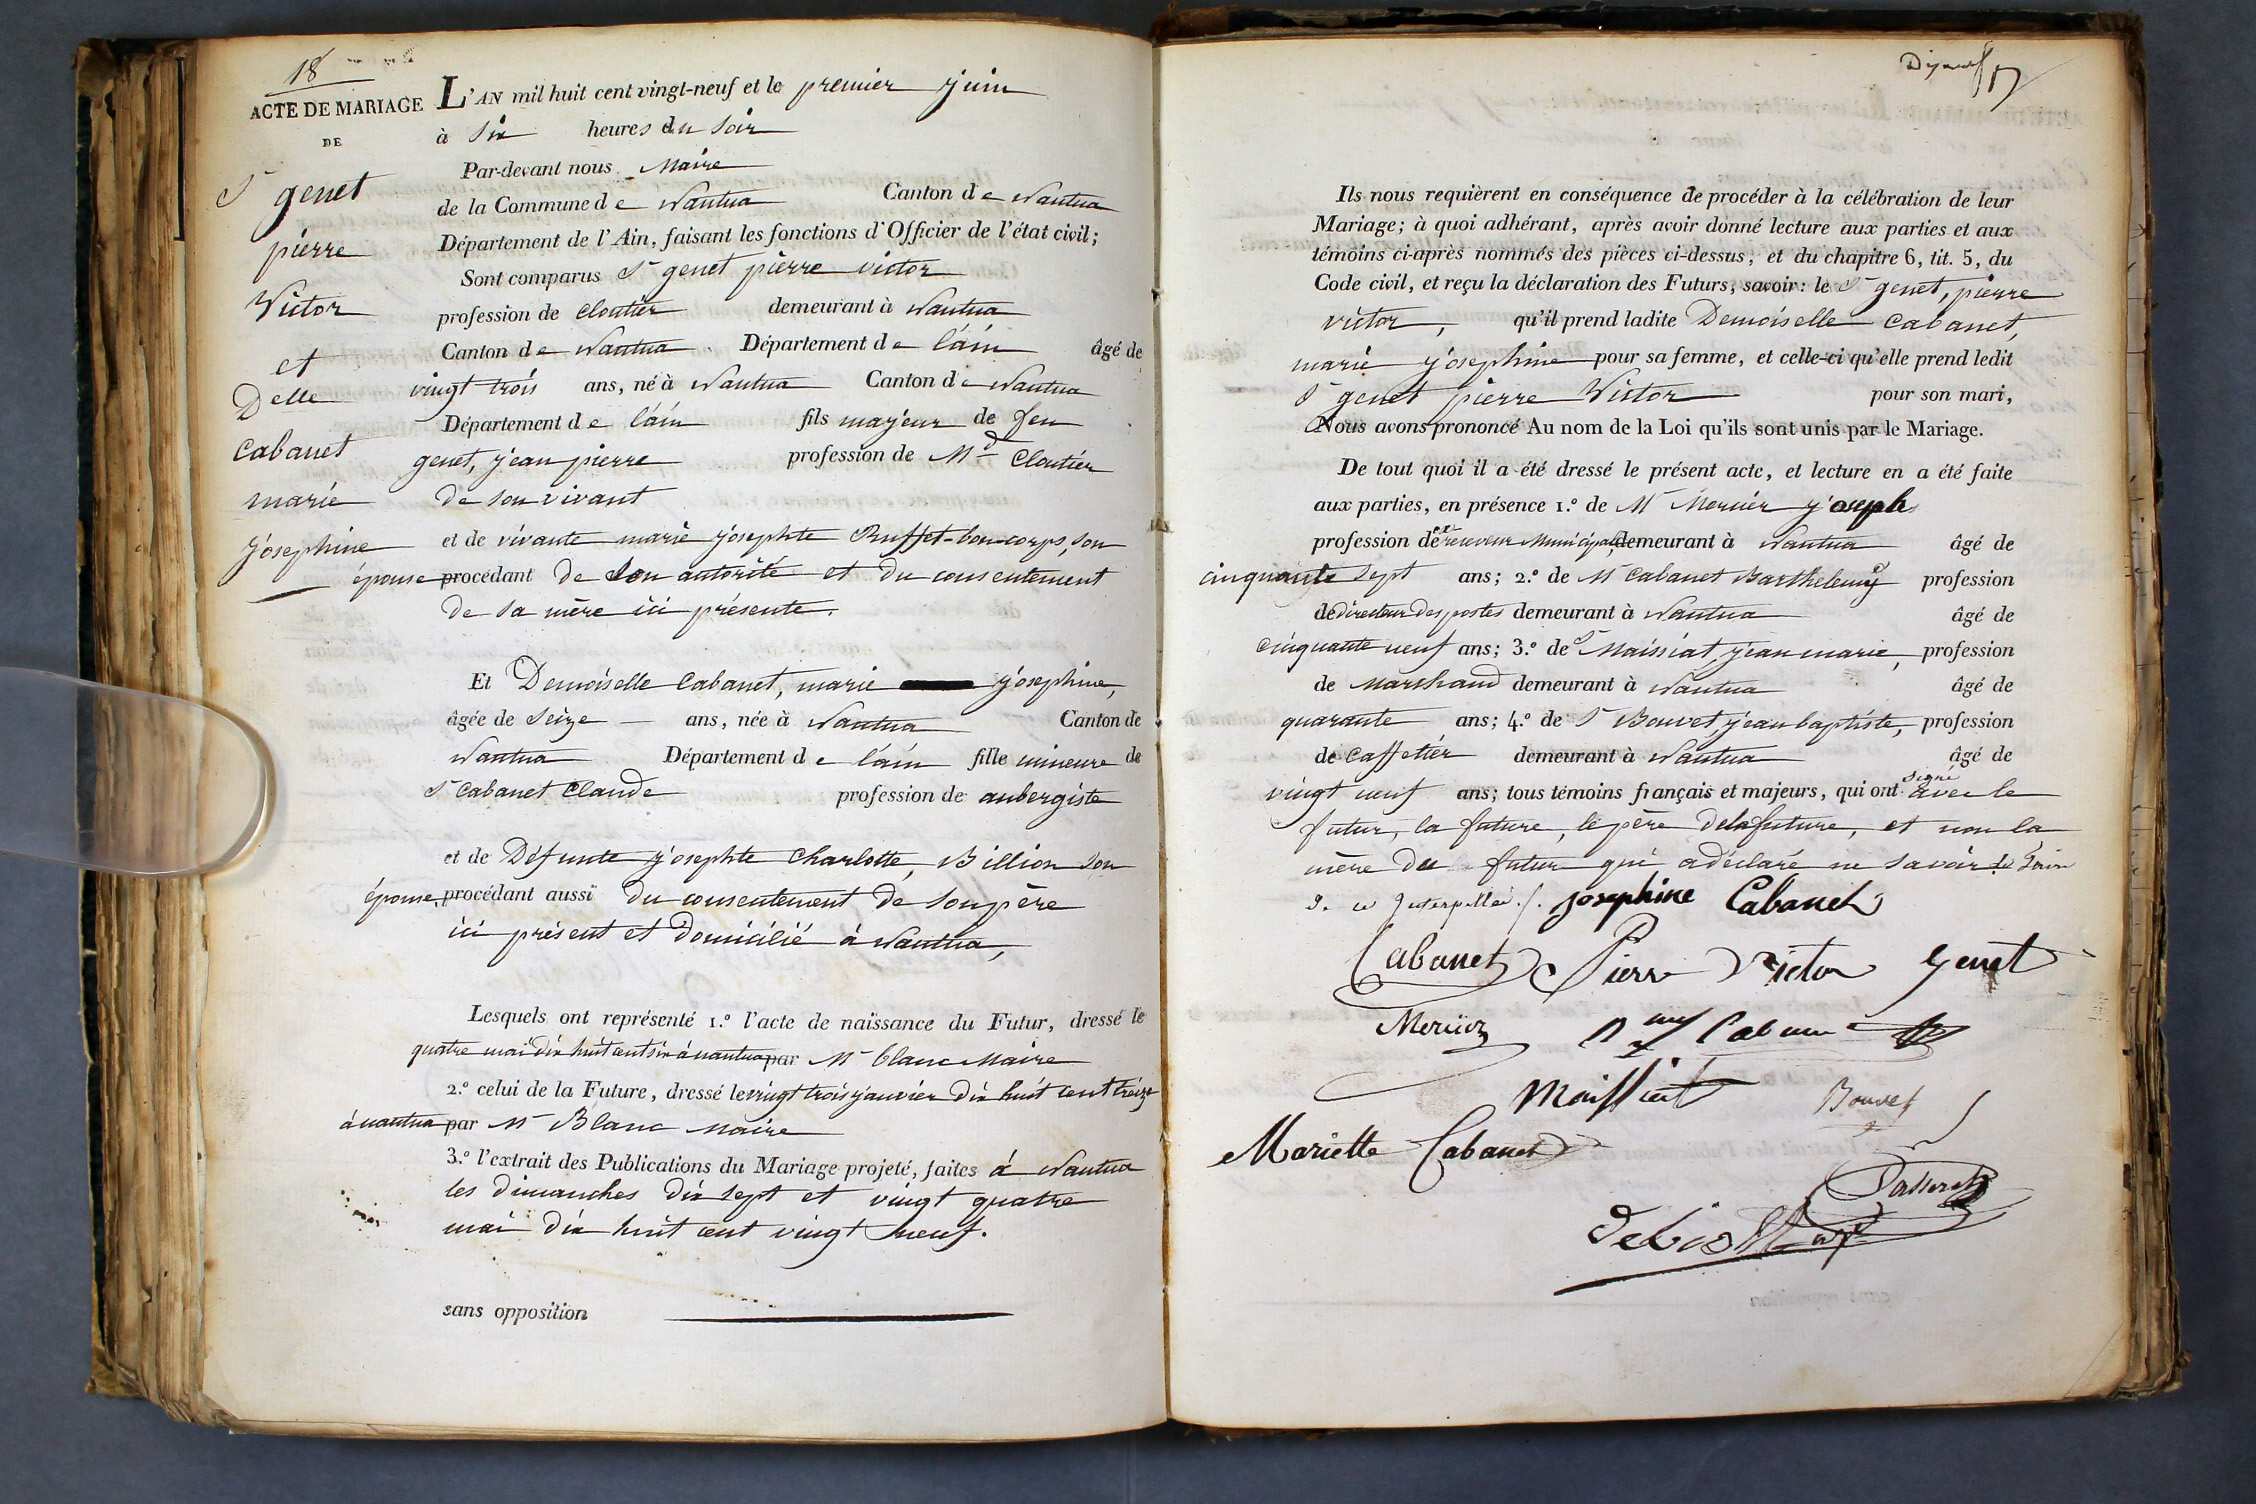 18
ACTE DE MARIAGE
DE
Sr genet
pierre
Victor
et
Delle
Cabanet
marie
josephine
L'AN mil huit cent vingt-neuf et le premier juin
à Six heures du Soir
Par-devant nous Maire
de la Commune de Nantua Canton de Nantua
Département de l'Ain, faisant les fonctions d'Officier de l'état civil;
Sont comparus Sr genet pierre victor
profession de Cloutier demeurant à Nantua
Canton de Nantua Département de l'ain âgé de
vingt trois ans, né à Nantua Canton de Nantua
Département de l'ain fils majeur de feu
genet, jean pierre profession de Md Cloutier
de son vivant
et de vivante marie josephte Buffet-bon-corps, son
épouse procédant de Son autorité et du consentement
de sa mère ici présente.
Et Demoiselle Cabanet, marie josephine,
âgée de Seize ans, née à Nantua Canton de
Nantua Département de l'ain fille mineure de
Sr Cabanet Claude profession de aubergiste
et de Défunte josephte Charlotte, Billion son
épouse, procédant aussi du consentement de son père
ici présent et domicilié à Nantua,
Lesquels ont représenté 1.º l'acte de naissance du Futur, dressé le
quatre mai dix huit cent six à nantua par Mr blanc Maire
2.º celui de la Future, dressé le vingt trois janvier dix huit cent treize
à nantua par Mr Blanc Maire
3.º l'extrait des Publications du Mariage projeté, faites à Nantua
les dimanches dix sept et vingt quatre
mai dix huit cent vingt neuf.
sans opposition
Ils nous requièrent en conséquence de procéder à la célébration de leur
Mariage; à quoi adhérant, après avoir donné lecture aux parties et aux
témoins ci-après nommés des pièces ci-dessus; et du chapitre 6, tit. 5, du
Code civil, et reçu la déclaration des Futurs, savoir: le Sr genet, pierre
victor, qu'il prend ladite Demoiselle Cabanet,
marie josephine pour sa femme, et celle-ci qu'elle prend ledit
Sr genet pierre Victor pour son mari,
Nous avons prononcé Au nom de la Loi qu'ils sont unis par le Mariage.
De tout quoi il a été dressé le présent acte, et lecture en a été faite
aux parties, en présence 1.º de Mr Mercier joseph
profession de receveur Municipal, demeurant à Nantua âgé de
cinquante Sept ans; 2.º de Mr Cabanet Barthelemy profession
de directeur des postes demeurant à Nantua âgé de
cinquante neuf ans; 3.º de Sr Maissiat, jean marie, profession
de Marchand demeurant à Nantua âgé de
quarante ans; 4.º de Sr Bouvet, jean baptiste, profession
de Caffetier demeurant à Nantua âgé de
vingt neuf ans; tous témoins français et majeurs, qui ont signé avec le
futur, la future, le père de la future, et non la
mère du futur qui a déclaré ne savoir le faire
de ce Interpellée
josephine Cabanet
Cabanet Pierre Victor Genet
Mercier Cabanet
Maissiat Bouvet
Mariette Cabanet
Passerat